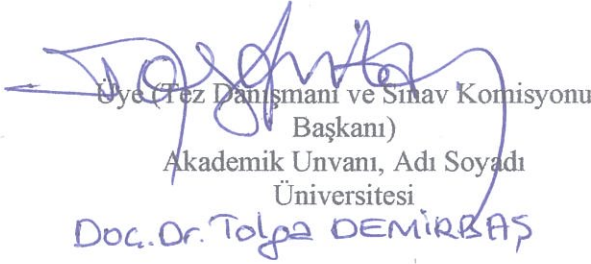 Üye (Tez Danışmanı ve Sınav Komisyonu
Başkanı)
Akademik Unvanı, Adı Soyadı
Üniversitesi
Doç.Dr. Tolga DEMİRBAŞ